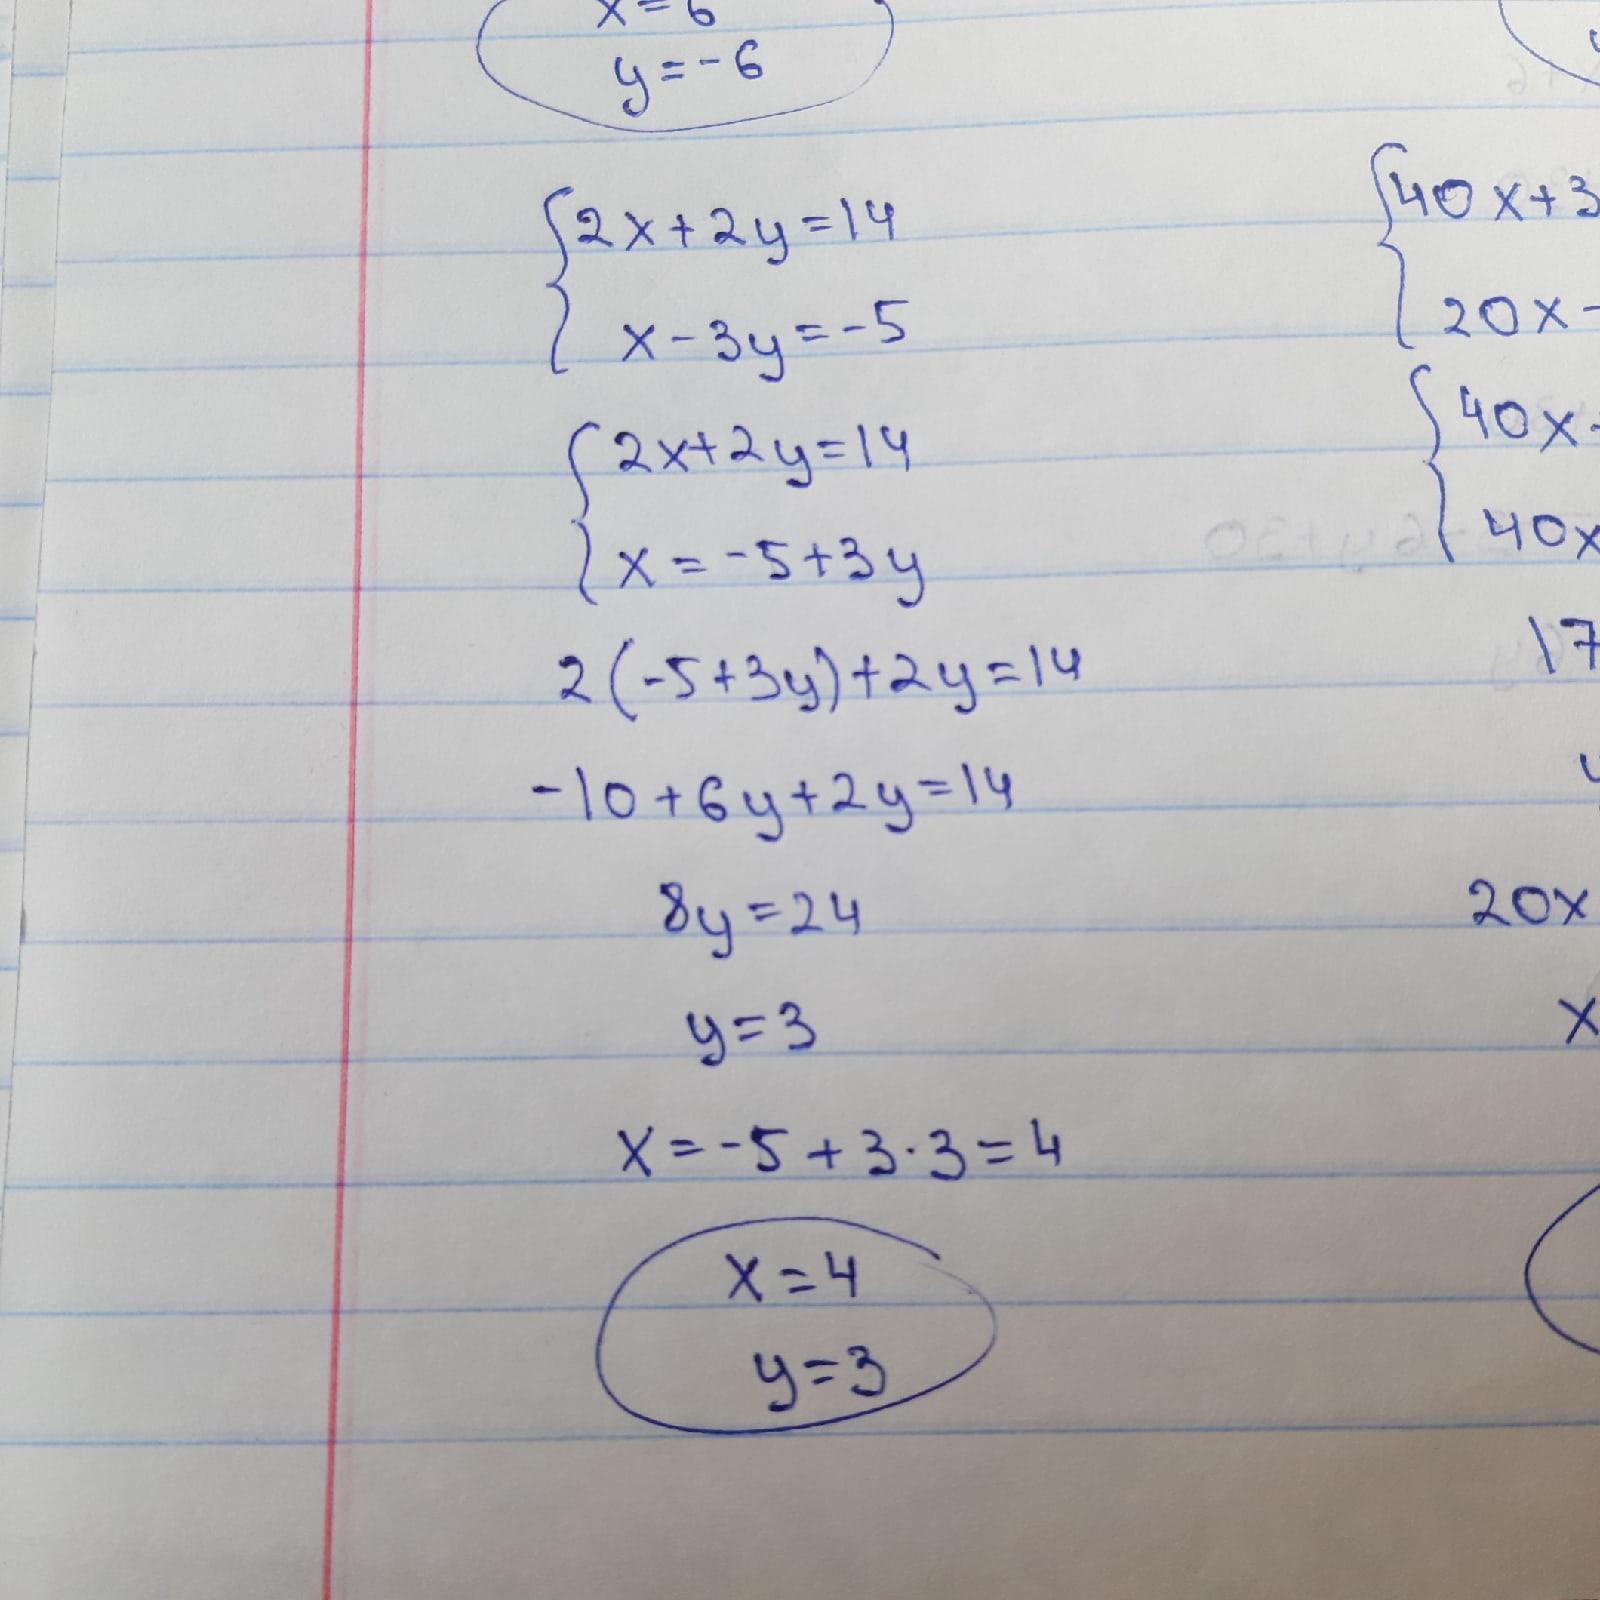 x=6
y=-6
2x+2y=14
x-3y=-5
2x+2y=14
x=-5+3y
2(-5+3y)+2y=14
-10+6y+2y=14
8y=24
y=3
x=-5+3·3=4
x=4
y=3
40x+3
20x-
40x-
40x
17
20x
x